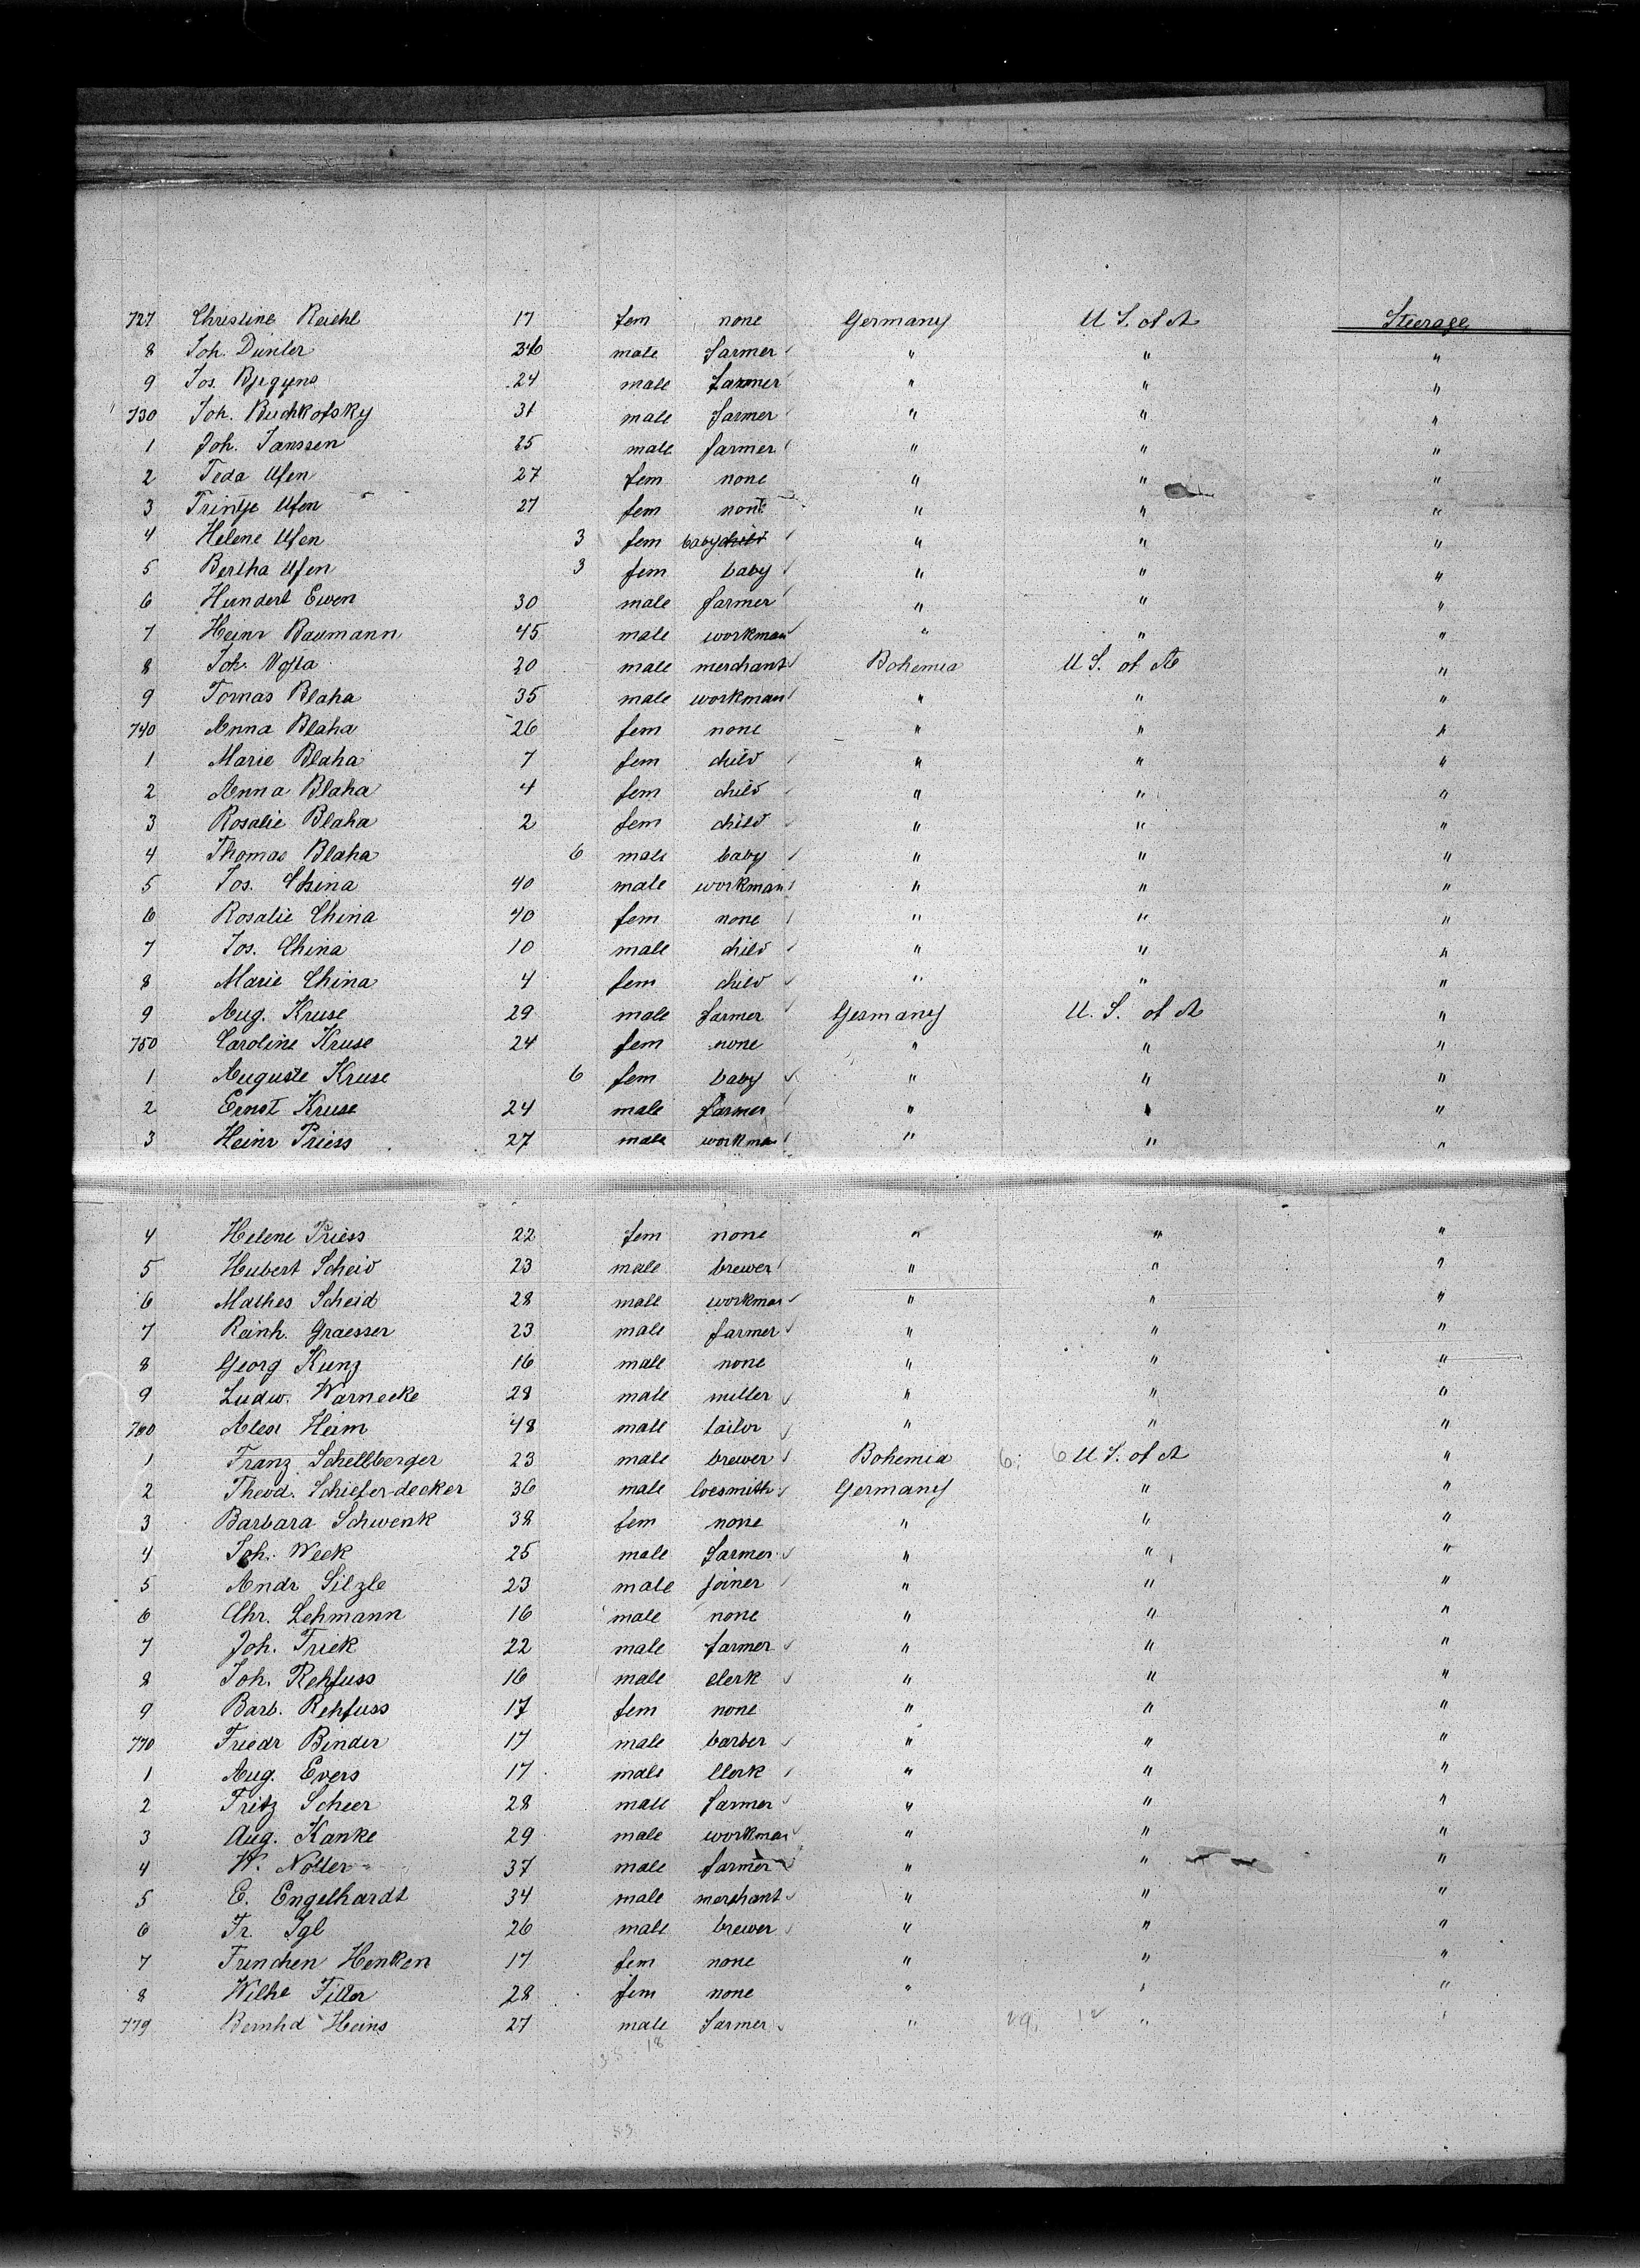 727 Christine Reichl 17 fem none Germany U S. of A Steerage
8 Joh. Dunler 36 male farmer " " "
9 Jos. 24 male farmer " " "
730 Joh. Buchkofsky 31 male farmer " " "
1 Joh. Janssen 25 male farmer " " "
2 Teda Ufen 27 fem none " " "
3 Trintje Ufen 27 fem none " " "
4 Helene Ufen 3 fem baby child " " "
5 Bertha Ufen 3 fem baby " " "
6 Hundert Ewen 30 male farmer " " "
7 Heinr Baumann 45 male workman " " "
8 Joh. Vojta 20 male merchant Bohemia U S. of A "
9 Tomas Blaha 35 male workman " " "
740 Anna Blaha 26 fem none " " "
1 Marie Blaha 7 fem child " " "
2 Anna Blaha 4 fem child " " "
3 Rosalie Blaha 2 fem child " " "
4 Thomas Blaha 6 male baby " " "
5 Jos. China 40 male workman " " "
6 Rosalie China 40 fem none " " "
7 Jos. China 10 male child " " "
8 Marie China 4 fem child " " "
9 Aug. Kruse 29 male farmer Germany U. S. of A "
750 Caroline Kruse 24 fem none " " "
1 Auguste Kruse 6 fem baby " " "
2 Ernst Kruse 24 male farmer " " "
3 Heinr Priess 27 male workma " " "
4 Helene Priess 22 fem none " " "
5 Hubert Scheid 23 male brewer " " "
6 Mathes Scheid 28 male workman " " "
7 Reinh. Graesser 23 male farmer " " "
8 Georg Kunz 16 male none " " "
9 Ludw. Warnecke 28 male miller " " "
760 Alex Heim 48 male tailor " " "
1 Franz Schellberger 23 male brewer Bohemia 6 6 U S. of A "
2 Theod. Schiefer-decker 36 male locsmith Germany " "
3 Barbara Schwenk 38 fem none " " "
4 Joh. Weck 25 male farmer " " "
5 Andr Silzle 23 male joiner " " "
6 Chr. Lehmann 16 male none " " "
7 Joh. Frick 22 male farmer " " "
8 Joh. Rehfuss 16 male clerk " " "
9 Barb. Rehfuss 17 fem none " " "
770 Friedr Binder 17 male barber " " "
1 Aug. Evers 17 male Clerk " " "
2 Fritz Scheer 28 male farmer " " "
3 Aug. Kanke 29 male workman " " "
4 W. Noller 37 male farmer " " "
5 E. Engelhardt 34 male merchant " " "
6 Fr. Igl 26 male brewer " " "
7 Trinchen Henken 17 fem none " " "
8 Wilhe Fitter 28 fem none " " "
779 Bernhd Heins 27 male farmer " 29 12 " "
35 - 18
53